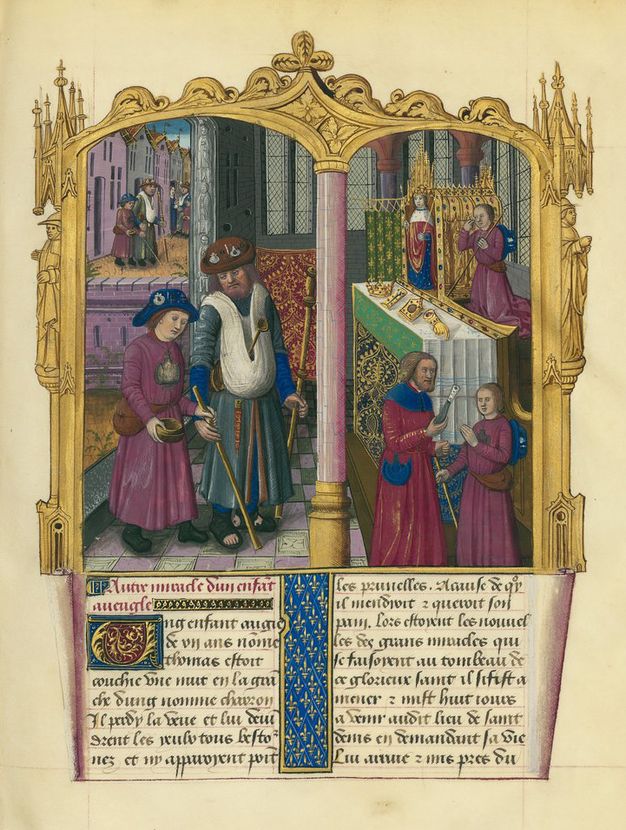 Autre miracle dun enfāt
aueugle
Ung enfant aagie
de vii ans nōme
thomas estoit
couchie vne nuit en la grā
che dung nomme chauron
Il perdy la veue et lui deui
drent les yeulx tous bestor
nez et ny apparoyent poīt
les prunelles. A cause de qoy
il mendioit ⁊ queroit son
pain. lors estoyent les nouuel
les des grans miracles qui
se faisoyent au tombeau de
ce glorieux saint il si fist a
mener ⁊ mist huit iours
a venir audit lieu de saint
denis en demandant sa vie
Lui arriue ⁊ mis pres du